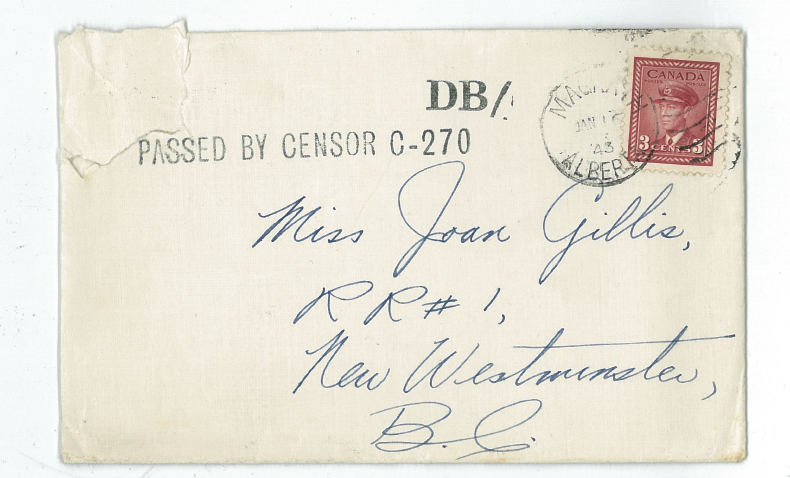 DB/
PASSED BY CENSOR C-270
JAN
43
ALBERTA
CANADA
3 CENTS 3
Miss Joan Gillis,
RR# 1,
New Westminster,
B.C.